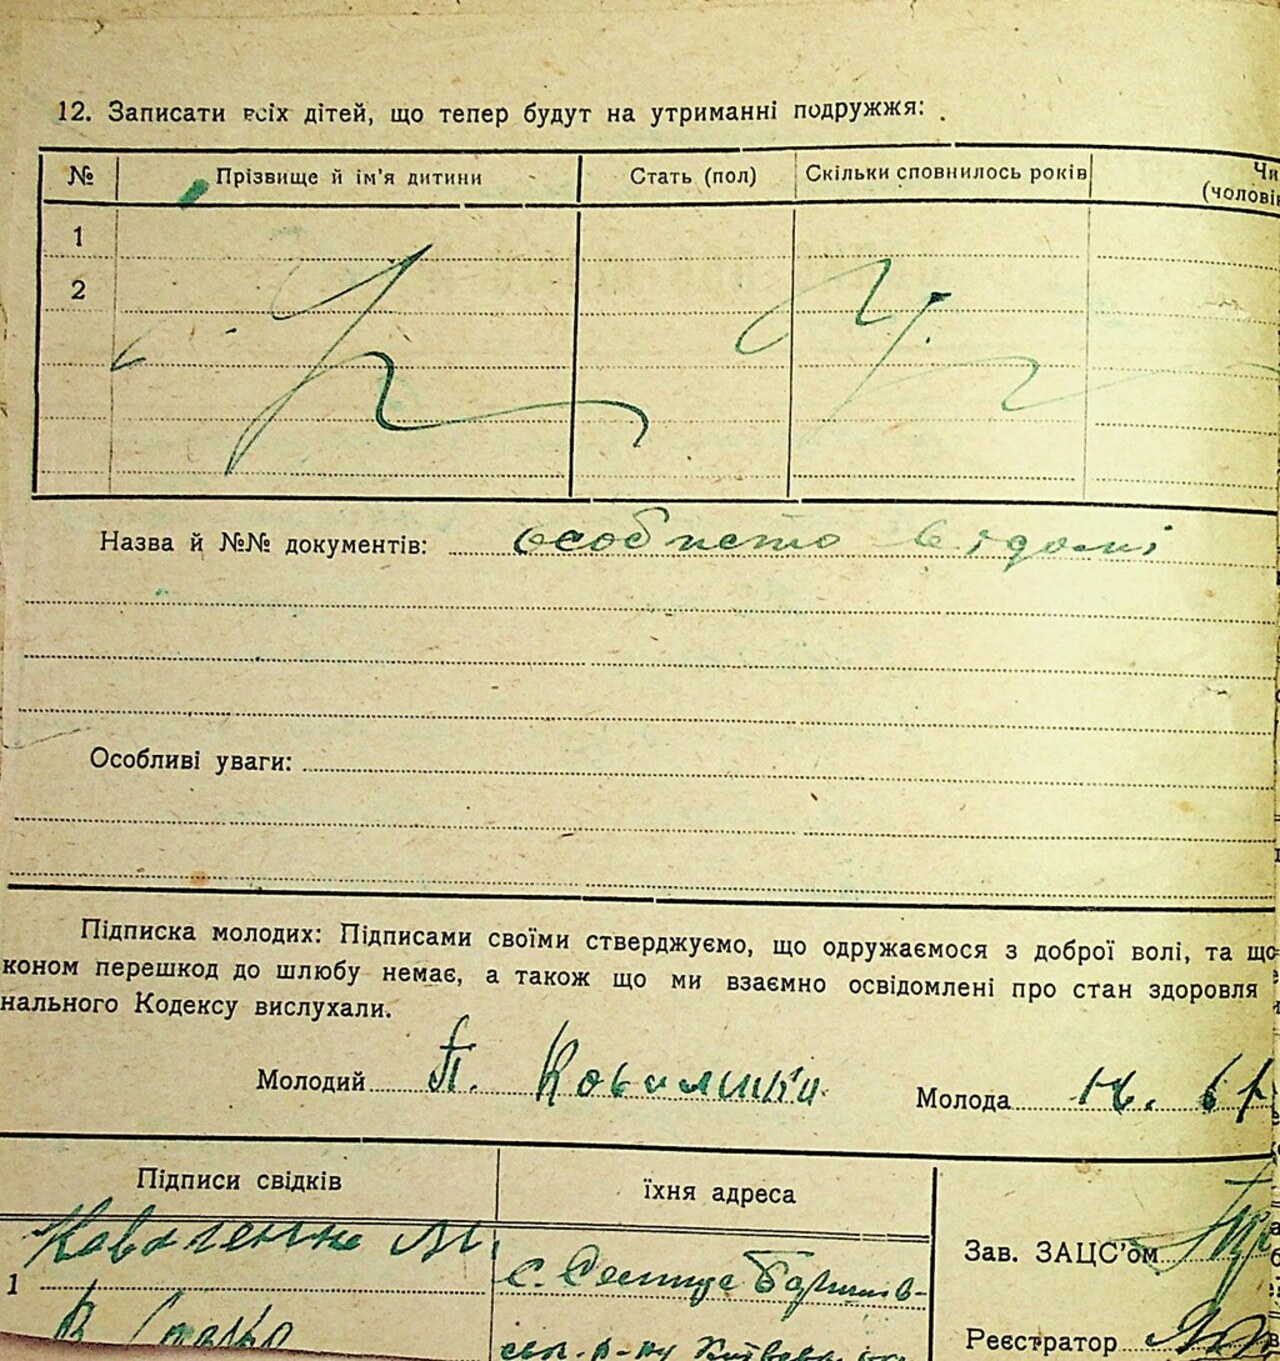 12. Записати всіх дітей, що тепер будут на утриманні подружжя:
№ Прізвище й ім'я дитини Стать (пол) Скільки сповнилось років Чи
(чолові
1
2
Назва й №№ документів: особисто відомі
Особливі уваги:
Підписка молодих: Підписами своїми стверджуємо, що одружаємося з доброї волі, та що
коном перешкод до шлюбу немає, а також що ми взаємно освідомлені про стан здоровля
нального Кодексу вислухали.
Молодий П. Молода
Підписи свідків їхня адреса
Коваленко М. Зав. ЗАЦС'ом
1 с.
Реєстратор